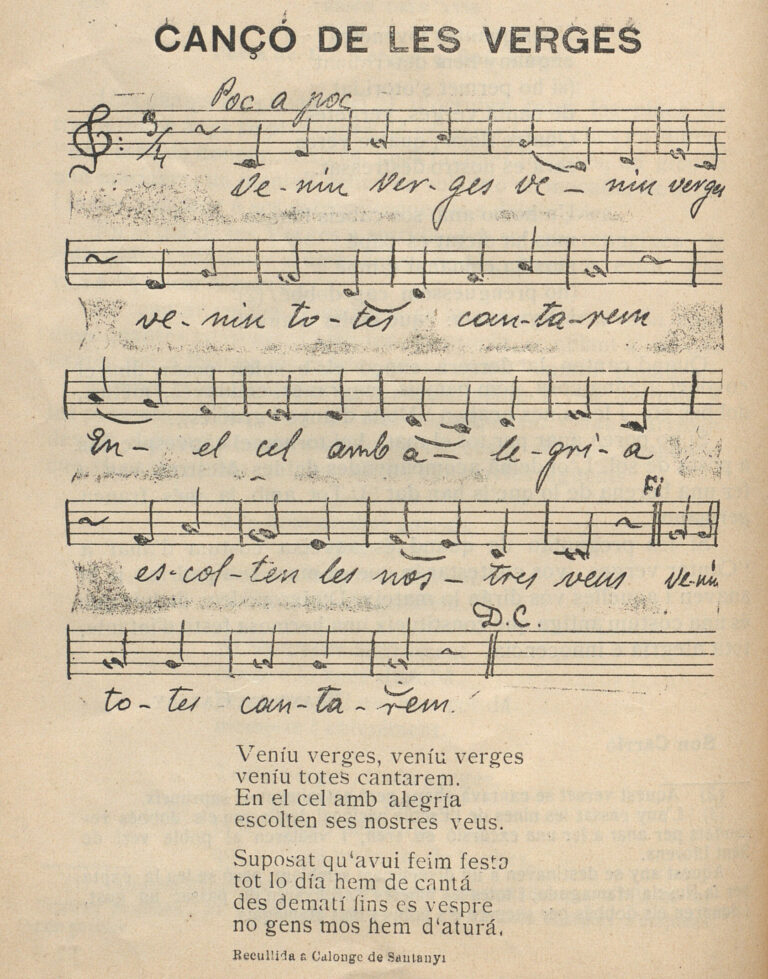 CANÇÓ DE LES VERGES
Poc a poc
3/4
Ve-niu ver-ges ve-niu verges
ve-niu to-tes can-ta-rem
En- el cel amb a- le-gri-a
Fi
es-col-ten les nos-tres veus ve-niu
D.C.
to-tes can-ta-rem.
Veníu verges, veníu verges
veníu totes cantarem.
En el cel amb alegría
escolten ses nostres veus.
Suposat qu'avui feim festa
tot lo día hem de cantá
des dematí fins es vespre
no gens mos hem d'aturá.
Recullida a Calonge de Santanyí